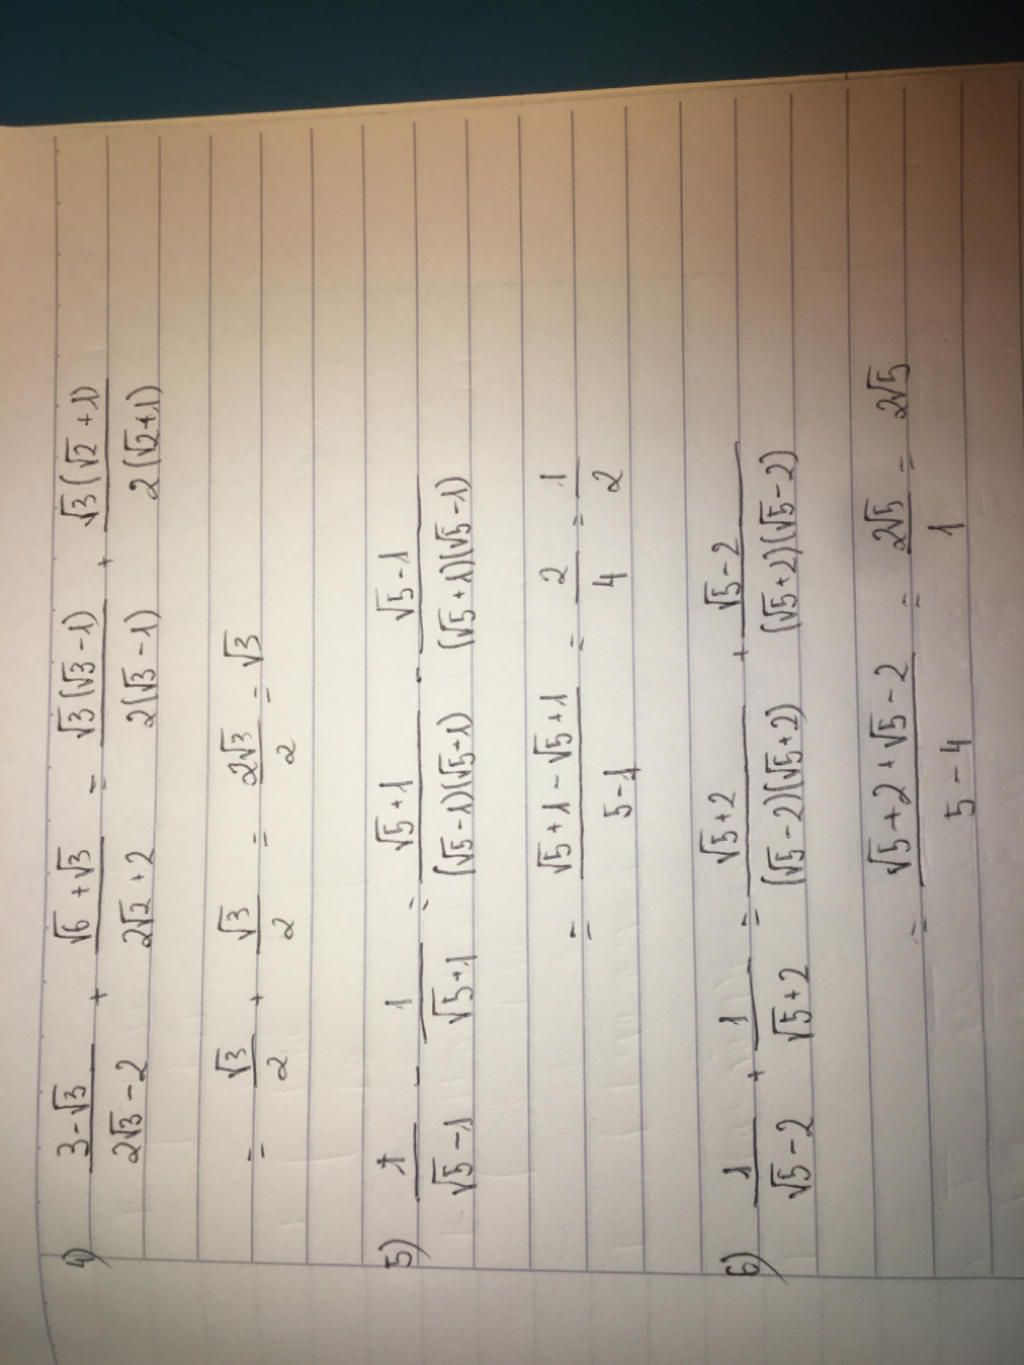 4) (3-√3)/(2√3-2) + (√6+√3)/(2√2+2) = (√3(√3-1))/(2(√3-1)) + (√3(√2+1))/(2(√2+1))
= √3/2 + √3/2 = 2√3/2 = √3
5) 1/(√5-1) - 1/(√5+1) = (√5+1)/((√5-1)(√5-1)) - (√5-1)/((√5+1)(√5-1))
= (√5+1-√5+1)/(5-1) = 2/4 = 1/2
6) 1/(√5-2) + 1/(√5+2) = (√5+2)/((√5-2)(√5+2)) + (√5-2)/((√5+2)(√5-2))
= (√5+2+√5-2)/(5-4) = 2√5/1 = 2√5